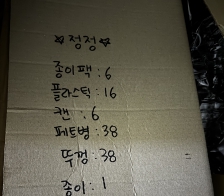 ☆정정☆
종이팩 : 6
플라스틱 : 16
캔 : 6
페트병 : 38
뚜껑 : 38
종이 : 1